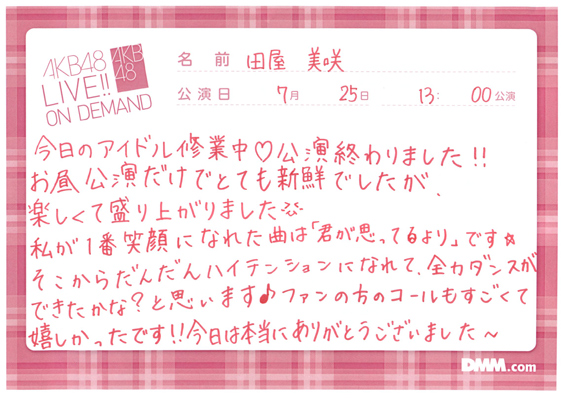 AKB48
LIVE!!
ON DEMAND
AKB
48
名前 田屋 美咲
公演日 7月 25日 13:00公演
今日のアイドル修業中♡公演終わりました!!
お昼公演だけでとても新鮮でしたが、
楽しくて盛り上がりました
私が1番笑顔になれた曲は「君が思ってるより」です☆
そこからだんだんハイテンションになれて、全力ダンスが
できたかな?と思います♪ファンの方のコールもすごくて
嬉しかったです!!今日は本当にありがとうございました~
DMM.com